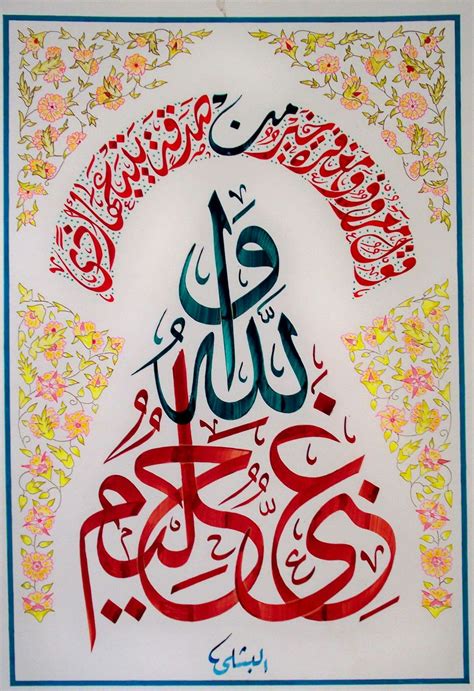 قول معروف ومغفرة خير من صدقة يتبعها أذى
والله
غني حليم
البشلى